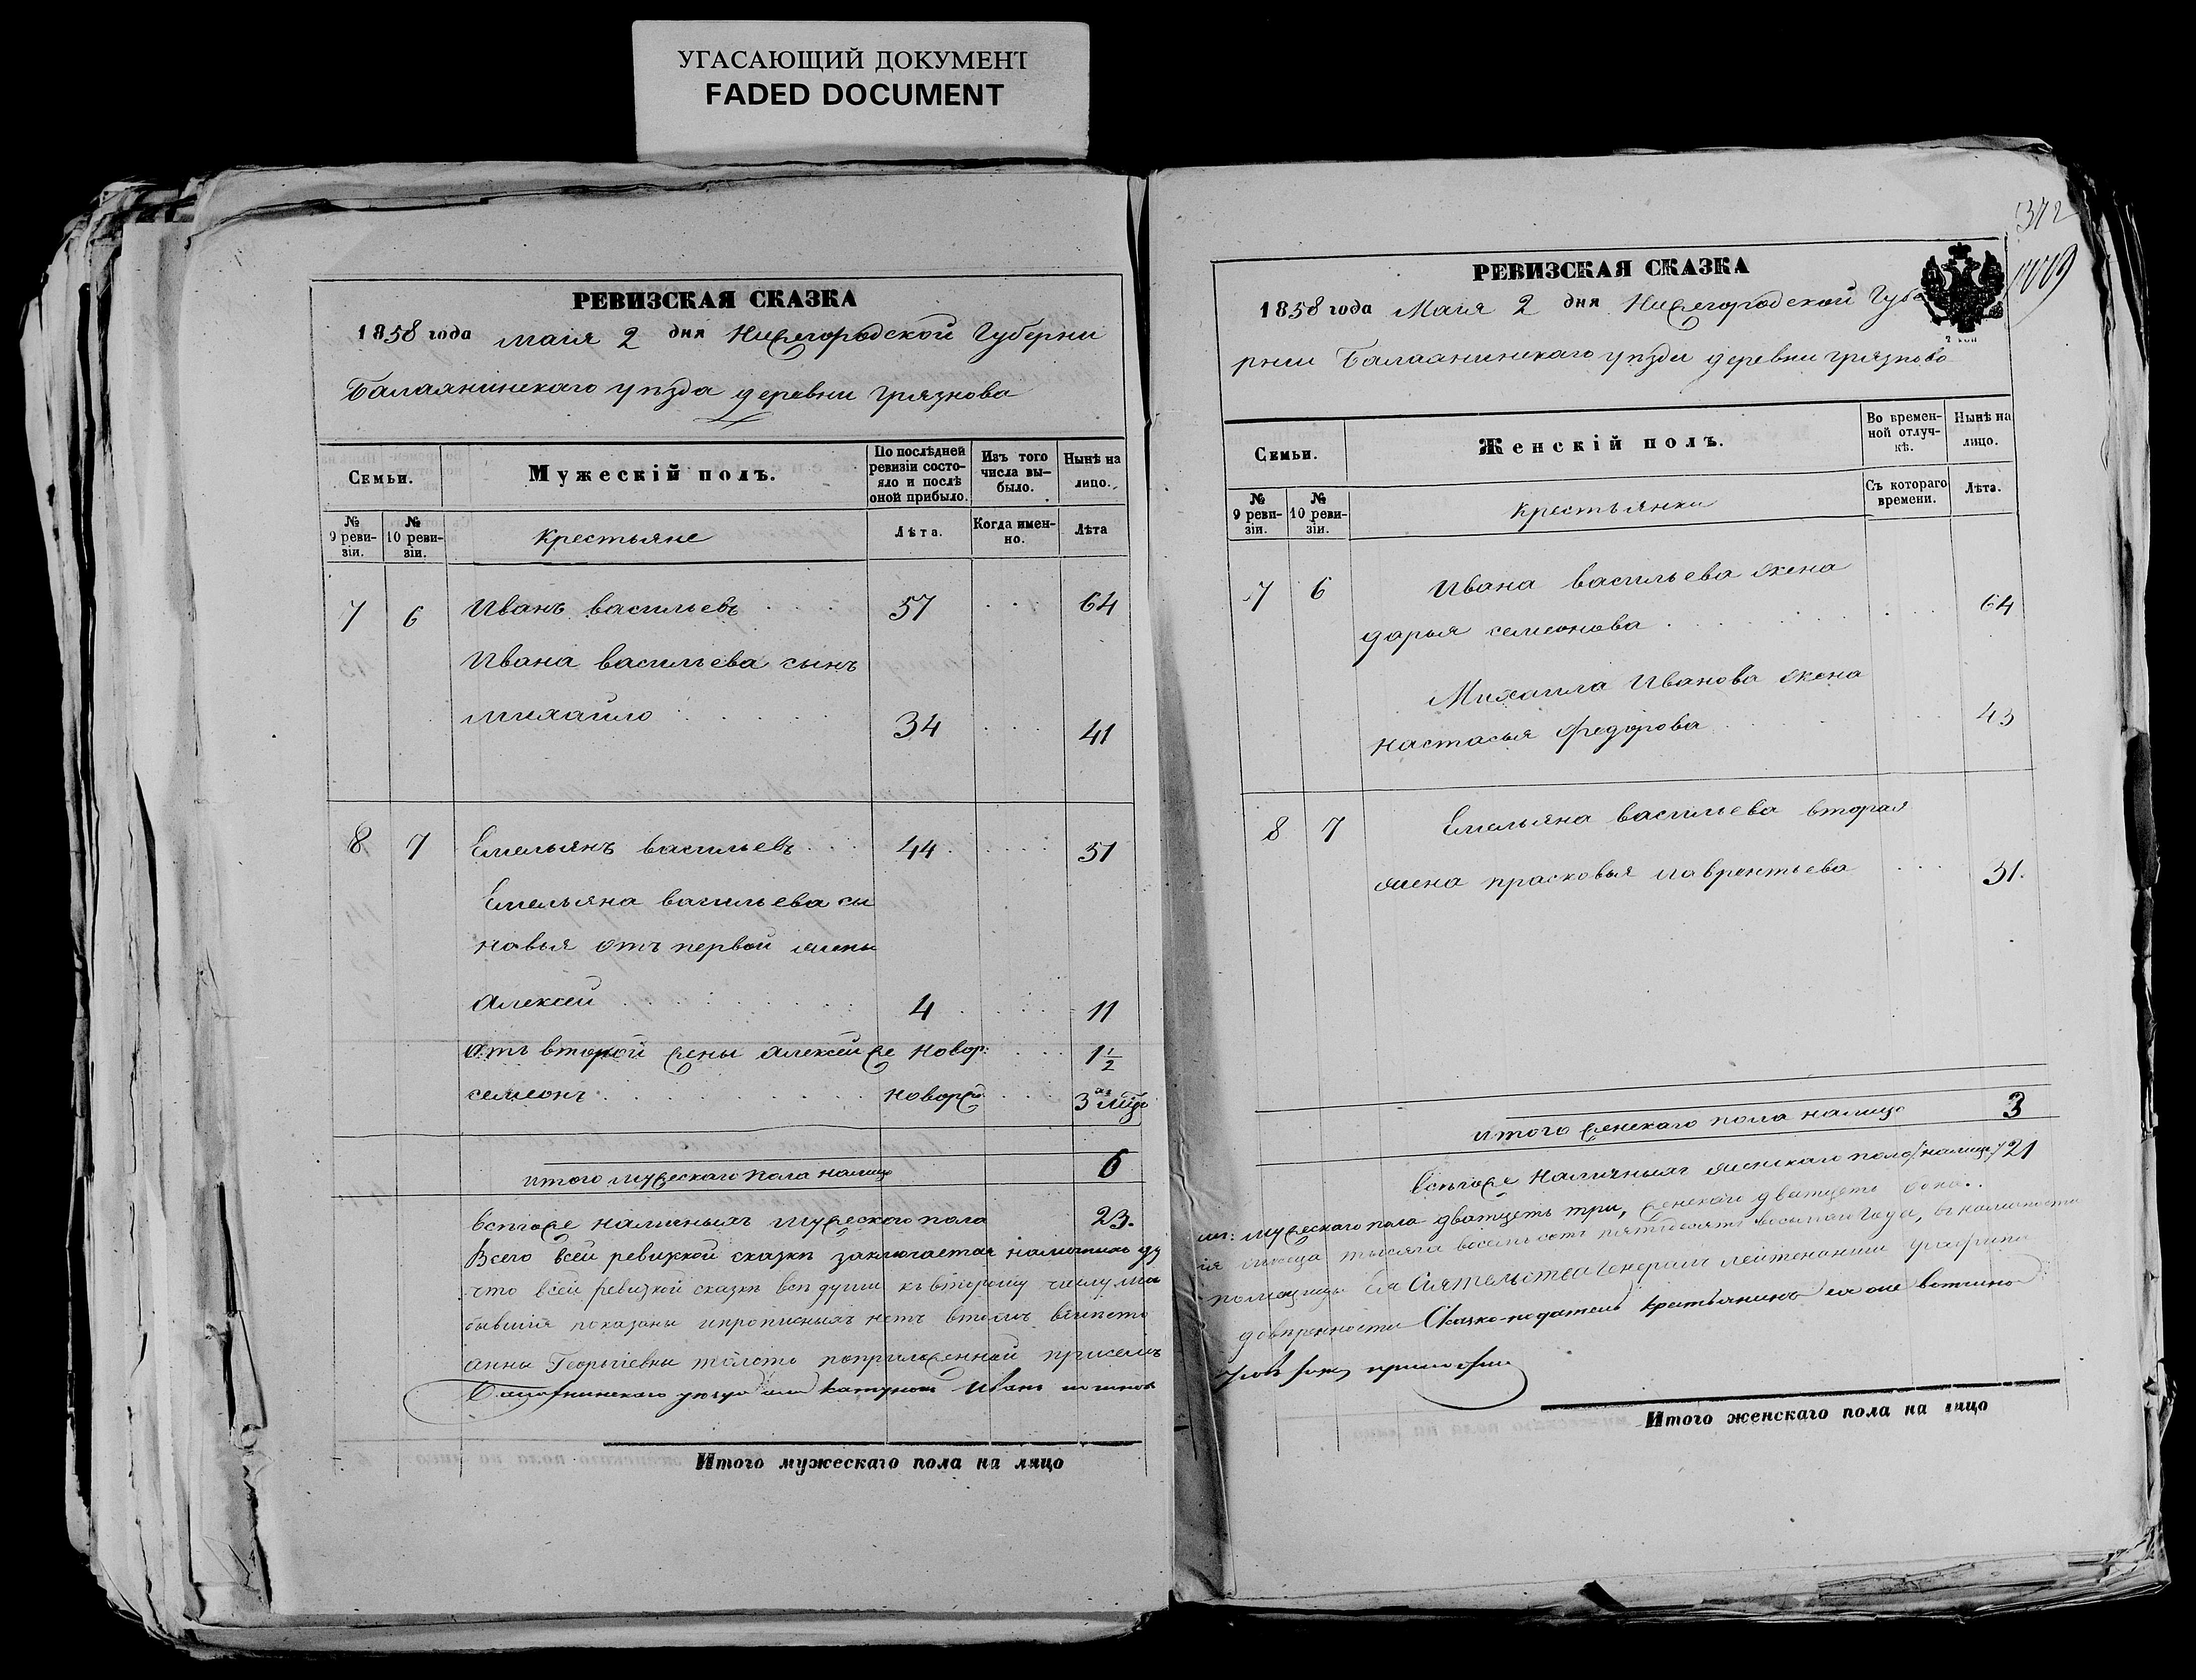 УГАСАЮЩИЙ ДОКУМЕНТ
FADED DOCUMENT
РЕВИЗСКАЯ СКАЗКА
1858 года маія 2 дня Нижегородской Губерни
Балаханинскаго уѣзда деревни грязнова
Семьи.
Мужескій полъ.
По послѣдней ревизіи состояло и послѣ оной прибыло.
Изъ того числа вы-было.
Нынѣ на лицо.
№ 9 реви-зіи.
№ 10 реви-зіи.
Крестьяне
Лѣта.
Когда имен-но.
Лѣта
7 6 Иванъ васильевъ 57 64
Ивана васильева сынъ
михайло 34 41
8 7 Емельянъ васильевъ 44 51
Емельяна васильева сы
новья отъ первой жены
Алексей 4 11
отъ второй жены алексей же новор: 1 1/2
семеонъ новорж 3
итого мужескаго пола налицо 6
всего же наличныхъ мужескаго пола 23.
Всего всей ревизкой сказкѣ заключается наличныхъ ду
что всей ревизкой сказкѣ всѣ души къ второму числу ма
бывшія показаны ипрописныхъ нетъ
анны Георгіевны толсто
Иванъ
Итого мужескаго пола на лицо
372
РЕВИЗСКАЯ СКАЗКА
1858 года Маія 2 дня Нижегородской Губе
рнии Балаханинскаго уѣзда деревни грязново
Семьи.
Женскій полъ.
Во времен-ной отлуч-кѣ.
Нынѣ на лицо.
№ 9 реви-зіи.
№ 10 реви-зіи.
крестьянки
Съ котораго времени.
Лѣта.
7 6 Ивана васильева жена
дарья семеонова 64
Михаила Иванова жена
настасья федорова 43
8 7 Емельяна васильева вторая
жена прасковья лаврентьева 31.
итого женскаго пола налицо 3
всего же наличныхъ женскаго пола (налицо) 21
мужескаго пола дватцеть три, женскаго дватцеть одна.
тысяча восемь сотъ пятьдесятъ восьмаго года,
помещицы Ея Сіятельства Генералъ лейтенанши графини
довѣренности Сказко-подателъ крестьянинъ ея вотчины
руку приложилъ
Итого женскаго пола на лицо